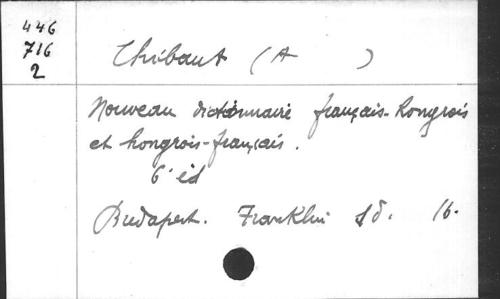 446
716
2
Thibaut (A )
Nouveau dictionnaire français-hongrois
et hongrois-français.
6' éd
Budapest. Franklin s d. 16.